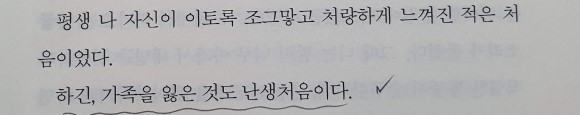 평생 나 자신이 이토록 조그맣고 처량하게 느껴진 적은 처
음이었다.
하긴, 가족을 잃은 것도 난생처음이다.